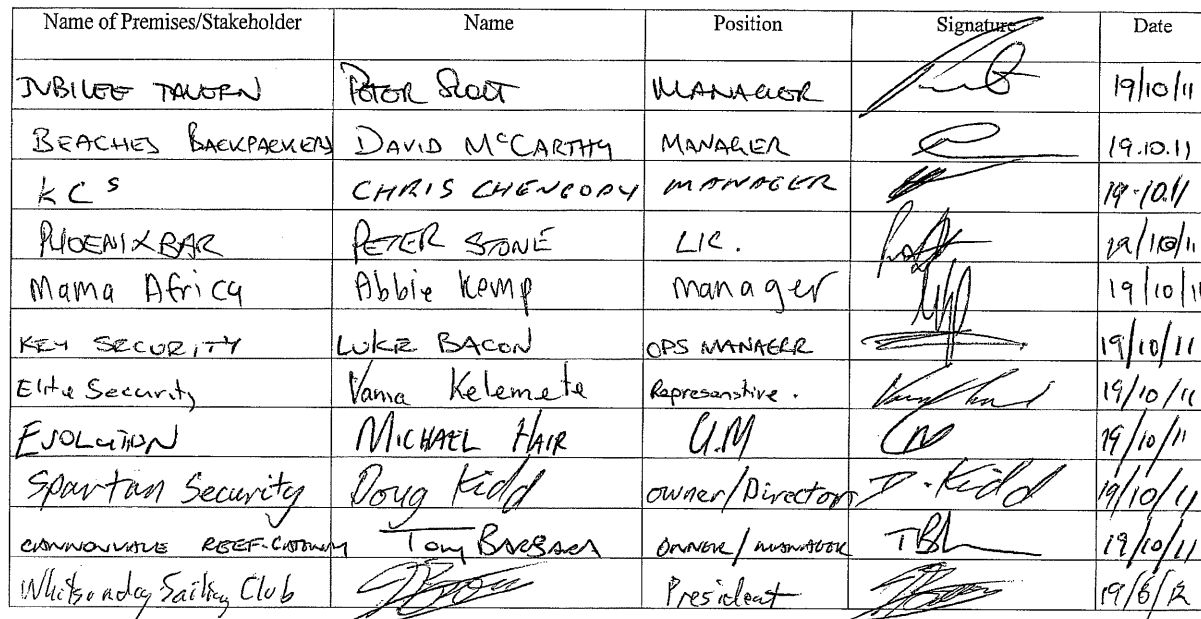 Name of Premises/Stakeholder Name Position Signature Date
JUBILEE TAVERN PETER MANAGER 19/10/11
BEACHES BACKPACKERS DAVID McCARTHY MANAGER 19.10.11
KCS CHRIS MANAGER 19.10.11
PHOENIX BAR PETER STONE LIC. 19/10/11
Mama Africa Abbie Kemp manager 19/10/11
KEY SECURITY LUKE BACON OPS MANAGER 19/10/11
Elite Security Vama Kelemete Represenstive. 19/10/11
EVOLUTION MICHAEL HAIR G.M 19/10/11
Spartan Security Doug Kidd owner/Director D. Kidd 19/10/11
CANNONVALE REEF GATEWAY Tony BARBARA OWNER/MANAGER 19/10/11
Whitsunday Sailing Club President 19/6/12